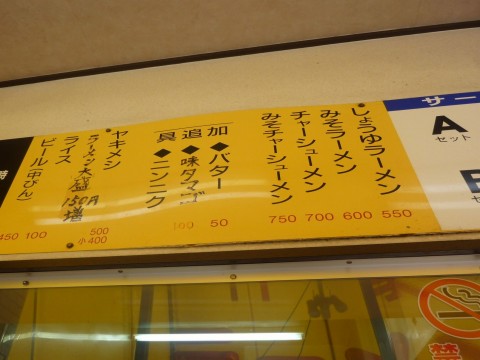 サー
A
セット
しょうゆラーメン 550
みそラーメン 600
チャーシューメン 700
みそチャーシューメン 750
追加
具
◆バター 50
◆味タマゴ 100
◆ニンニク
ヤキメシ 500
小400
ラーメン大盛150円増
ライス 100
ビール(中びん) 450
時
禁